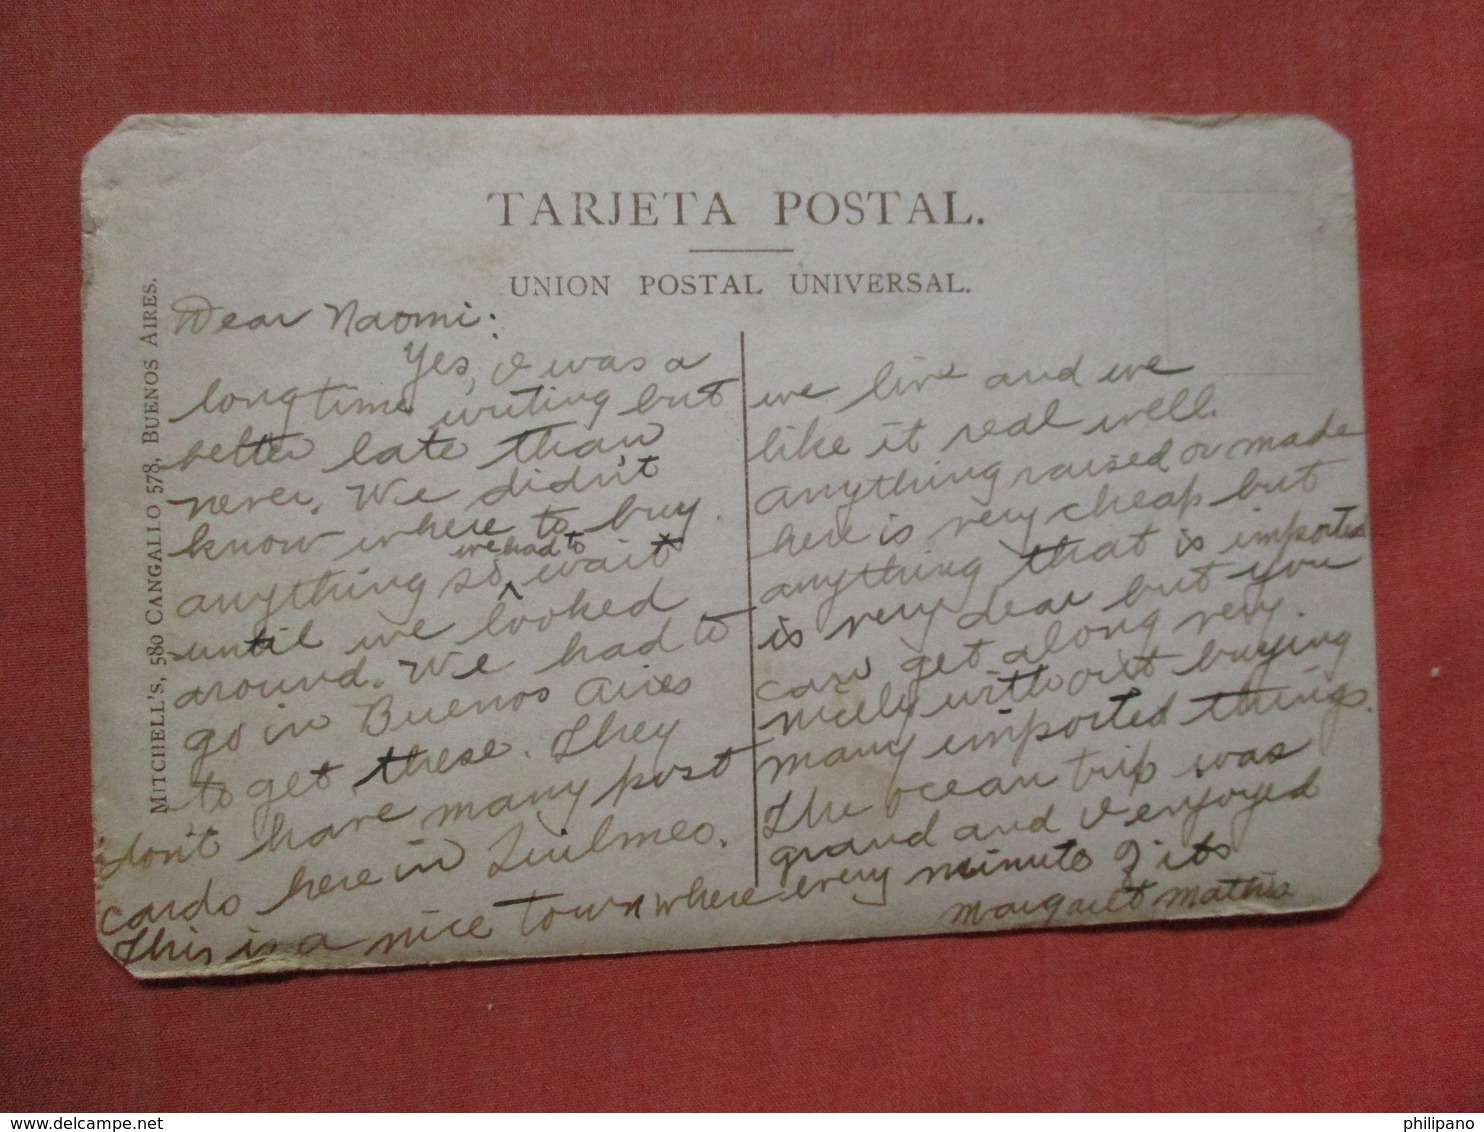 TARJETA POSTAL.
UNION POSTAL UNIVERSAL.
MITCHELL'S, 580 CANGALLO 578, BUENOS AIRES.
Dear Naomi:
Yes, I was a
long time writing but
better late than
never. We didn't
know where to buy
anything so we had to wait
until we looked
around. We had to
go in Buenos Aires
to get these. They
don't have many post
cards here in Quilmes.
This is a nice town where
we live and we
like it real well.
anything raised or made
here is very cheap but
anything that is imported
is very dear but you
can get along very
nicely without buying
many imported things.
The ocean trip was
grand and I enjoyed
every minute of it
Margaret Mathis
delcampe.net
philipano